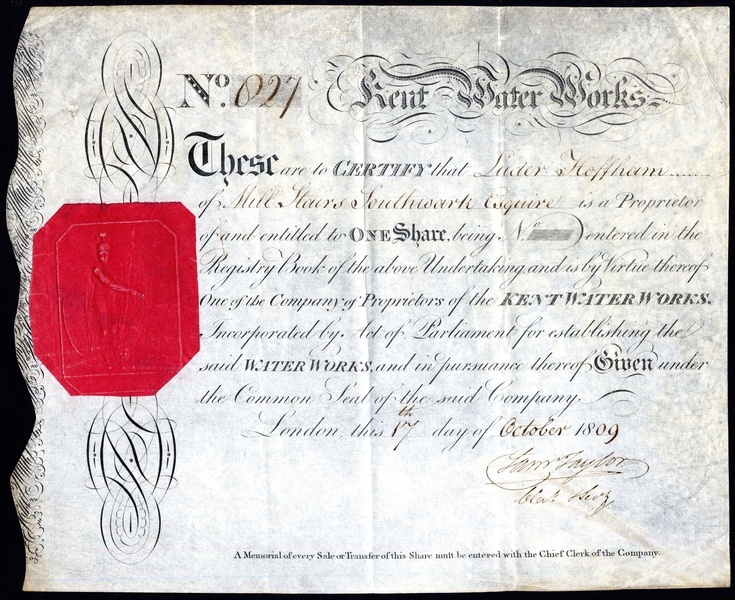 No. 827 Kent Water Works.
These are to CERTIFY that Luder Hoffham
of Mill Stairs Southwark Esquire is a Proprietor
of and entitled to ONE Share, being No entered in the
Registry Book of the above Undertaking, and is by Virtue thereof
One of the Company of Proprietors of the KENT WATER WORKS.
Incorporated by Act of Parliament for establishing the
said WATER WORKS, and in pursuance thereof Given under
the Common Seal of the said Company.
London, this 17th day of October 1809
Saml Taylor
A Memorial of every Sale or Transfer of this Share must be entered with the Chief Clerk of the Company.